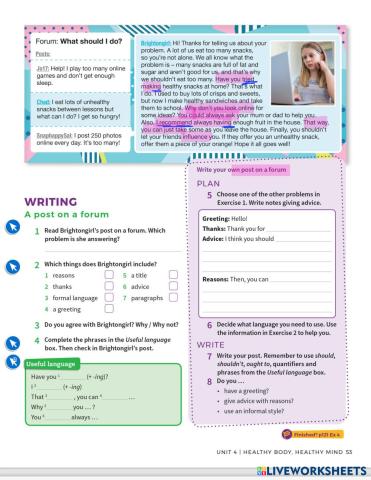 Forum: What should I do?
Posts:
Jo17: Help! I play too many online
games and don't get enough
sleep.
Chaz: I eat lots of unhealthy
snacks between lessons but
what can I do? I get so hungry!
SnaphappySal: I post 250 photos
online every day. It's too many!
Brightongirl: Hi! Thanks for telling us about your
problem. A lot of us eat too many snacks,
so you're not alone. We all know what the
problem is – many snacks are full of fat and
sugar and aren't good for us, and that's why
we shouldn't eat too many. Have you tried
making healthy snacks at home? That's what
I do. I used to buy lots of crisps and sweets,
but now I make healthy sandwiches and take
them to school. Why don't you look online for
some ideas? You could always ask your mum or dad to help you.
Also, I recommend always having enough fruit in the house. That way,
you can just take some as you leave the house. Finally, you shouldn't
let your friends influence you. If they offer you an unhealthy snack,
offer them a piece of your orange! Hope it all goes well!
WRITING
A post on a forum
1 Read Brightongirl's post on a forum. Which
problem is she answering?
2 Which things does Brightongirl include?
1 reasons 5 a title
2 thanks 6 advice
3 formal language 7 paragraphs
4 a greeting
3 Do you agree with Brightongirl? Why / Why not?
4 Complete the phrases in the Useful language
box. Then check in Brightongirl's post.
Useful language
Have you 1 (+ -ing)?
I 2 (+ -ing)
That 3 , you can 4 ...
Why 5 you ... ?
You 6 always ...
Write your own post on a forum
PLAN
5 Choose one of the other problems in
Exercise 1. Write notes giving advice.
Greeting: Hello!
Thanks: Thank you for
Advice: I think you should
Reasons: Then, you can
6 Decide what language you need to use. Use
the information in Exercise 2 to help you.
WRITE
7 Write your post. Remember to use should,
shouldn't, ought to, quantifiers and
phrases from the Useful language box.
8 Do you ...
• have a greeting?
• give advice with reasons?
• use an informal style?
Finished? p121 Ex 4
UNIT 4 | HEALTHY BODY, HEALTHY MIND 53
LIVEWORKSHEETS